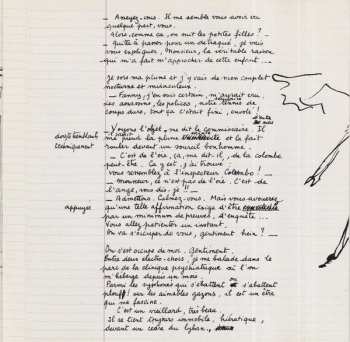 – Asseyez-vous. Il me semble vous avoir vu
quelque part, vous.
Alors, comme ça, on suit les petites filles ?
– quitte à passer pour un détraqué, je vais
vous expliquer, Monsieur, la véritable raison
qui m'a fait m'approcher de cette enfant...
Je sors ma plume et j'y vais de mon complet
nocturne et miraculeux.
– Fanny, j'en suis certain, m'aurait cru
les assassins, les polices, notre tennis de
coups durs, tout ça c'était fini, envolé !
– Voyons l'objet, me dit le commissaire. Il
me saisit la plume et la fait
rouler devant un sourcil bonhomme.
– C'est de l'oie, ça, ma dit-il, de la colombe
peut-être. Ça y est, j'ai trouvé :
vous ressemblez à l'inspecteur Colombo !
– Monsieur, ce n'est pas de l'oie. C'est de
l'ange, vous dis-je !!
– Admettons. Calmez-vous. Mais vous avouerez
appuyée
qu'une telle affirmation exige d'être
par un minimum de preuves, d'enquête...
Vous allez patienter un instant.
On va s'occuper de vous, gentiment hein ?
On s'est occupé de moi. Gentiment.
Entre deux électro-chocs, je me balade dans le
parc de la clinique psychiatrique où l'on
m'héberge depuis un mois.
Parmi les siphonnés qui s'ébattent et s'abattent
plouff ! sur les aimables gazons, il est un être
qui me fascine.
C'est un vieillard, très beau.
Il se tient toujours immobile, hiératique,
devant un cèdre du Liban,